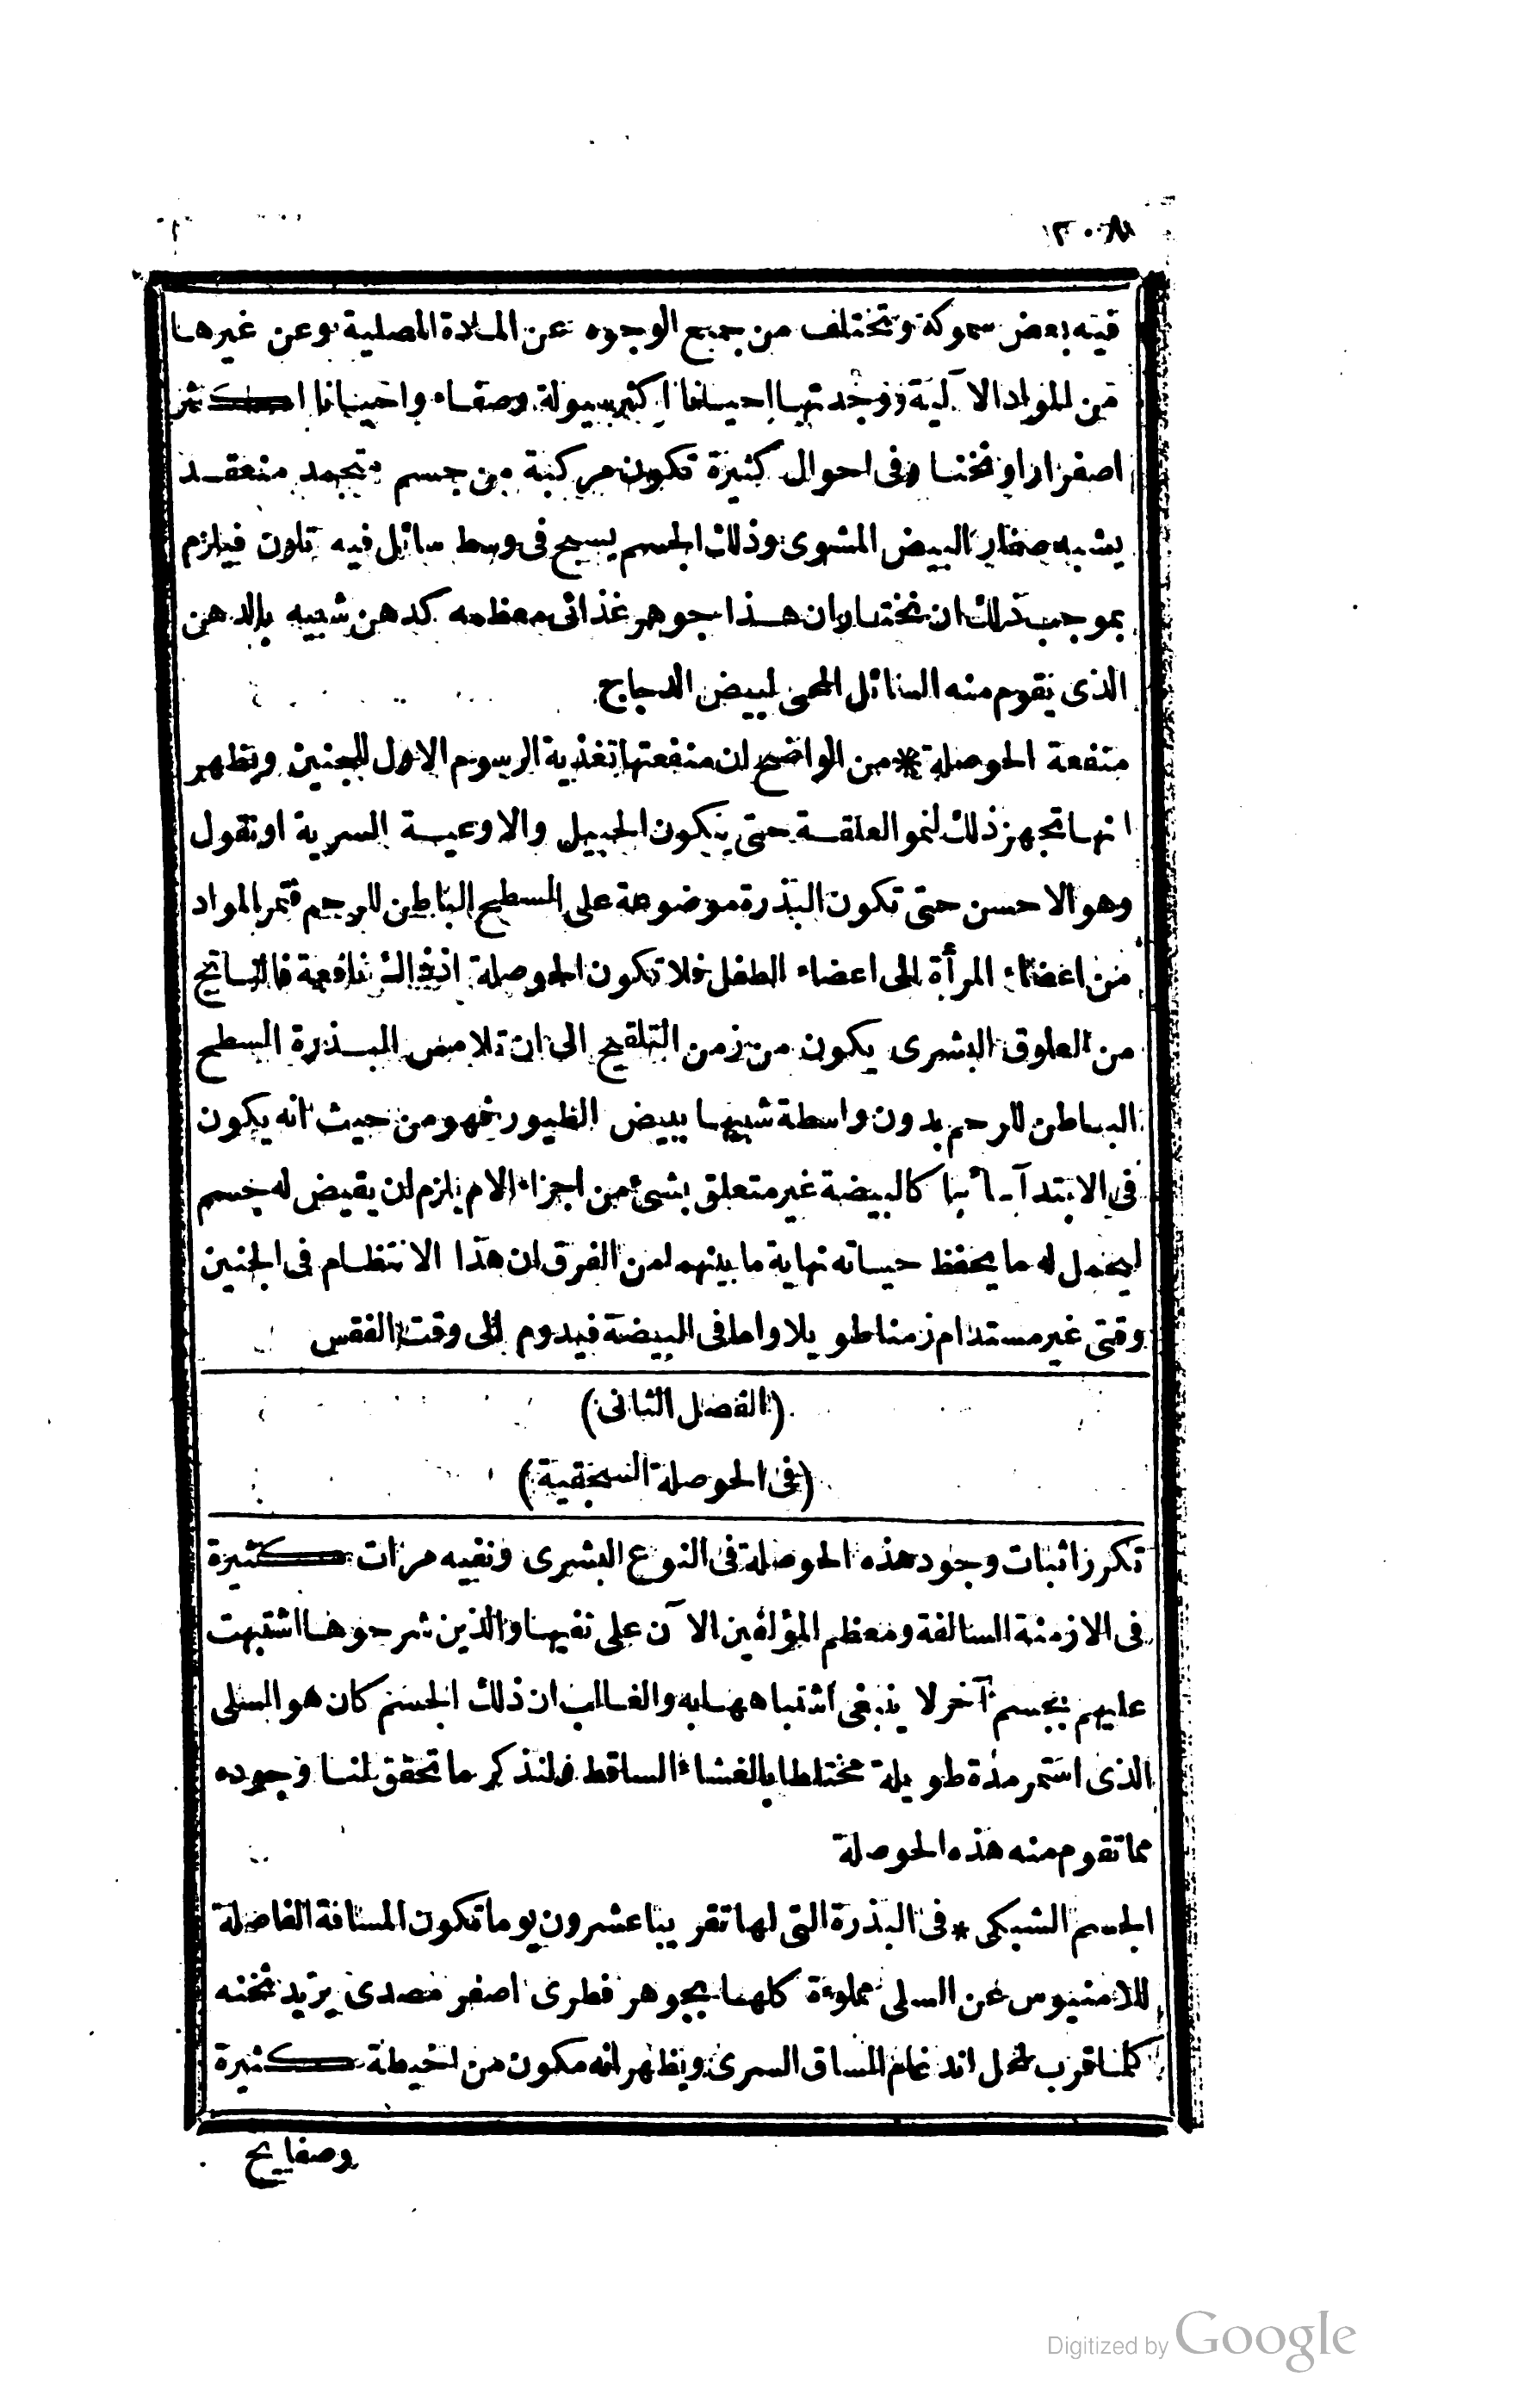 ٢٠٨
فيه بعض سموكة وتختلف من جميع الوجوه عن المادة المصلية وعن غيرها
من المواد الآلية ووجدتها احيانا اكثر سيولة وصفاء واحيانا اكثر
اصفرارا وثخنا وفى احوال كثيرة تكون مركبة من جسم متجمد منعقد
يشبه صفار البيض المشوى وذلك الجسم يسبح فى وسط سائل فيه تلون فيلزم
بموجب ذلك ان نختار ان هذا جوهر غذائى معظمه كدهن شبيه بالدهن
الذى يقوم منه السائل المحى لبيض الدجاج
منفعة الحوصلة * من الواضح ان منفعتها تغذية الرسوم الاول للجنين ويظهر
انها تجهز ذلك لنمو العلقة حتى يتكون الحبيل والاوعية السرية او نقول
وهو الاحسن حتى تكون البذرة موضوعة على السطح الباطن للرحم فتمر المواد
من اعضاء المرأة الى اعضاء الطفل فلا تكون الحوصلة اذ ذاك نافعة فالناتج
من العلوق البشرى يكون من زمن التلقيح الى ان تلامس البذرة السطح
الباطن للرحم بدون واسطة شبيها ببيض الطيور فهو من حيث انه يكون
فى الابتدآء سا كالبيضة غير متعلق بشئ من اجزاء الام يلزم ان يقيض له جسم
ليحمل له ما يحفظ حياته نهاية ما بينهما من الفرق ان هذا الانتظام فى الجنين
وقتى غير مستدام زمنا طويلا واما فى البيضة فيدوم الى وقت الفقس
(الفصل الثانى)
(فى الحوصلة السجقية)
تكرر اثبات وجود هذه الحوصلة فى النوع البشرى ونفيه مرات كثيرة
فى الازمنة السالفة ومعظم المؤلفين الآن على نفيها والذين شرحوها اشتبهت
عليهم بجسم آخر لا ينبغى اشتباهها به والغالب ان ذلك الجسم كان هو السلى
الذى استمر مدة طويلة مختلطا بالغشاء الساقط فلنذكر ما تحقق لنا وجوده
مما تقوم منه هذه الحوصلة
الجسم الشبكى * فى البذرة التى لها تقريبا عشرون يوما تكون المسافة الفاصلة
للامنيوس عن السلى مملوءة كلها بجوهر فطرى اصفر صدى يزيد ثخنه
كلما قرب لمحل اندغام الساق السرى ويظهر انه مكون من اخيطة كثيرة
وصفايح
Digitized by Google